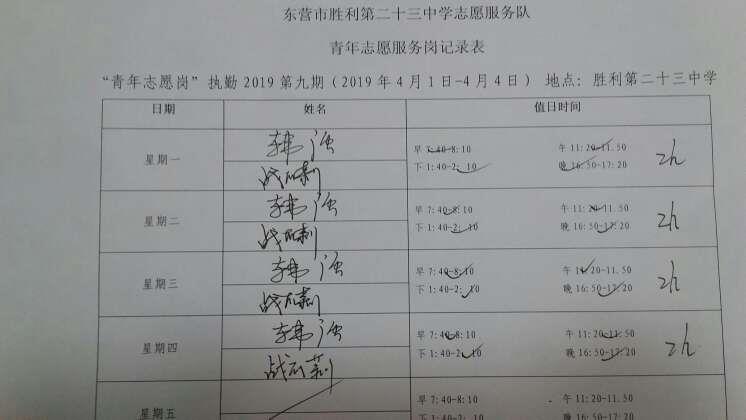 东营市胜利第二十三中学志愿服务队
青年志愿服务岗记录表
“青年志愿岗”执勤2019第九期（2019年4月1日-4月4日） 地点：胜利第二十三中学
日期 姓名 值日时间
星期一 韩强 早7:40-8:10 午11:20-11.50 2h
下1:40-2:10 晚16:50-17:20
星期二 韩强 早7:40-8:10 午11:20-11.50 2h
下1:40-2:10 晚16:50-17:20
星期三 韩强 早7:40-8:10 午11:20-11.50 2h
下1:40-2:10 晚16:50-17:20
星期四 韩强 早7:40-8:10 午11:20-11:50 2h
下1:40-2:10 晚16:50-17:20
星期五 早7:40-8:10 午11:20-11.50
下1:40-2:10 晚16:50-17:20